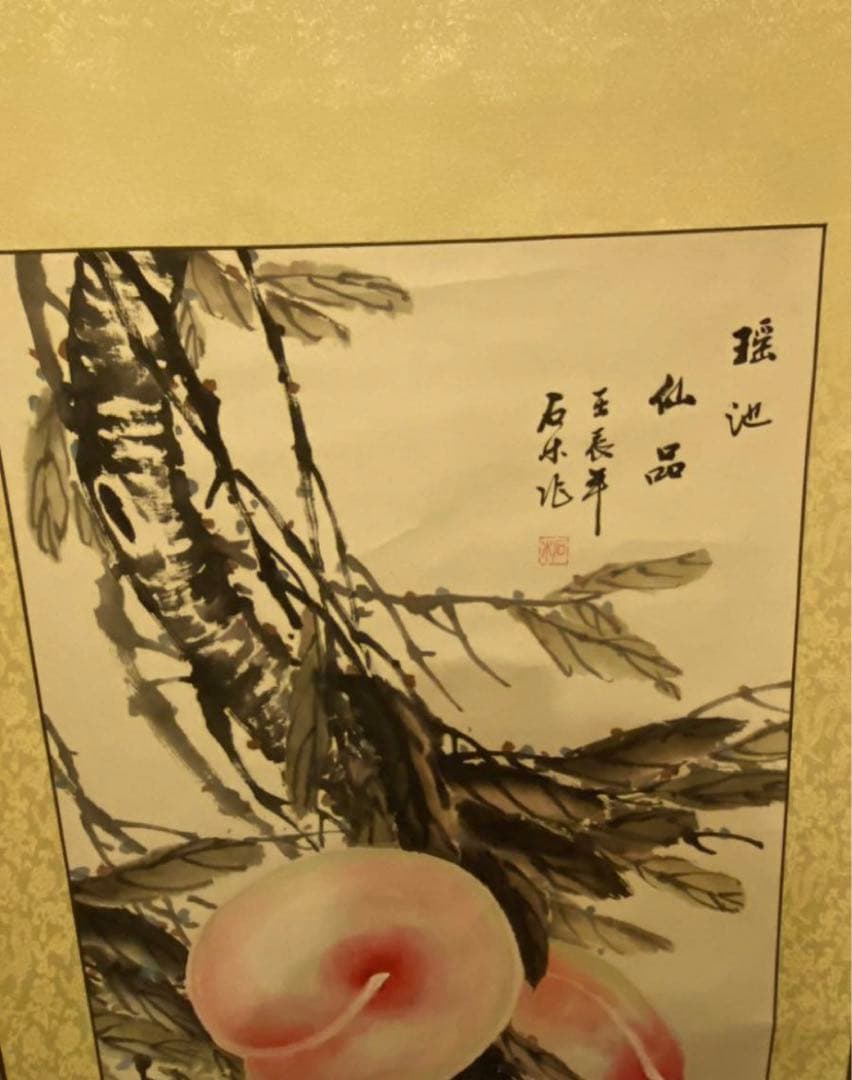 瑶池
仙品
壬辰年
石木作